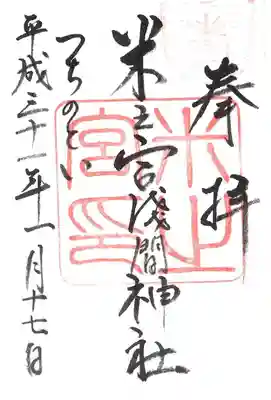 奉拝
米之宮浅間神社
つちのとい
平成三十一年一月十七日
米之
宮印